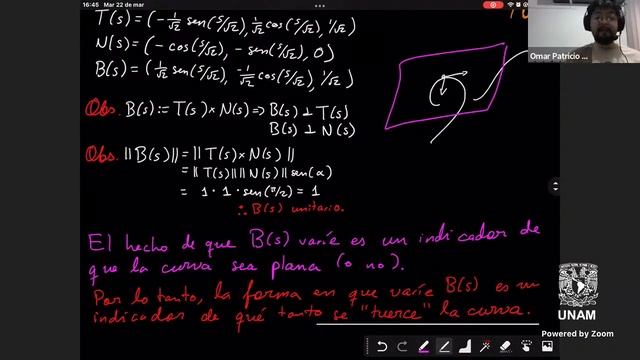 16:45 Mar 22 de mar
T(s)=(-1/√2 sen(s/√2), 1/√2 cos(s/√2), 1/√2)
N(s)=(-cos(s/√2), -sen(s/√2), 0)
B(s)=(1/√2 sen(s/√2), -1/√2 cos(s/√2), 1/√2)
Obs. B(s):=T(s)×N(s)⇒B(s)⊥T(s)
B(s)⊥N(s)
Obs. ||B(s)||=||T(s)×N(s)||
=||T(s)|| ||N(s)|| sen(α)
= 1·1·sen(π/2)=1
∴ B(s) unitario.
El hecho de que B(s) varíe es un indicador de
que la curva sea plana (o no).
Por lo tanto, la forma en que varíe B(s) es un
indicador de qué tanto se "tuerce" la curva.
Omar Patricio ...
UNAM
Powered by Zoom